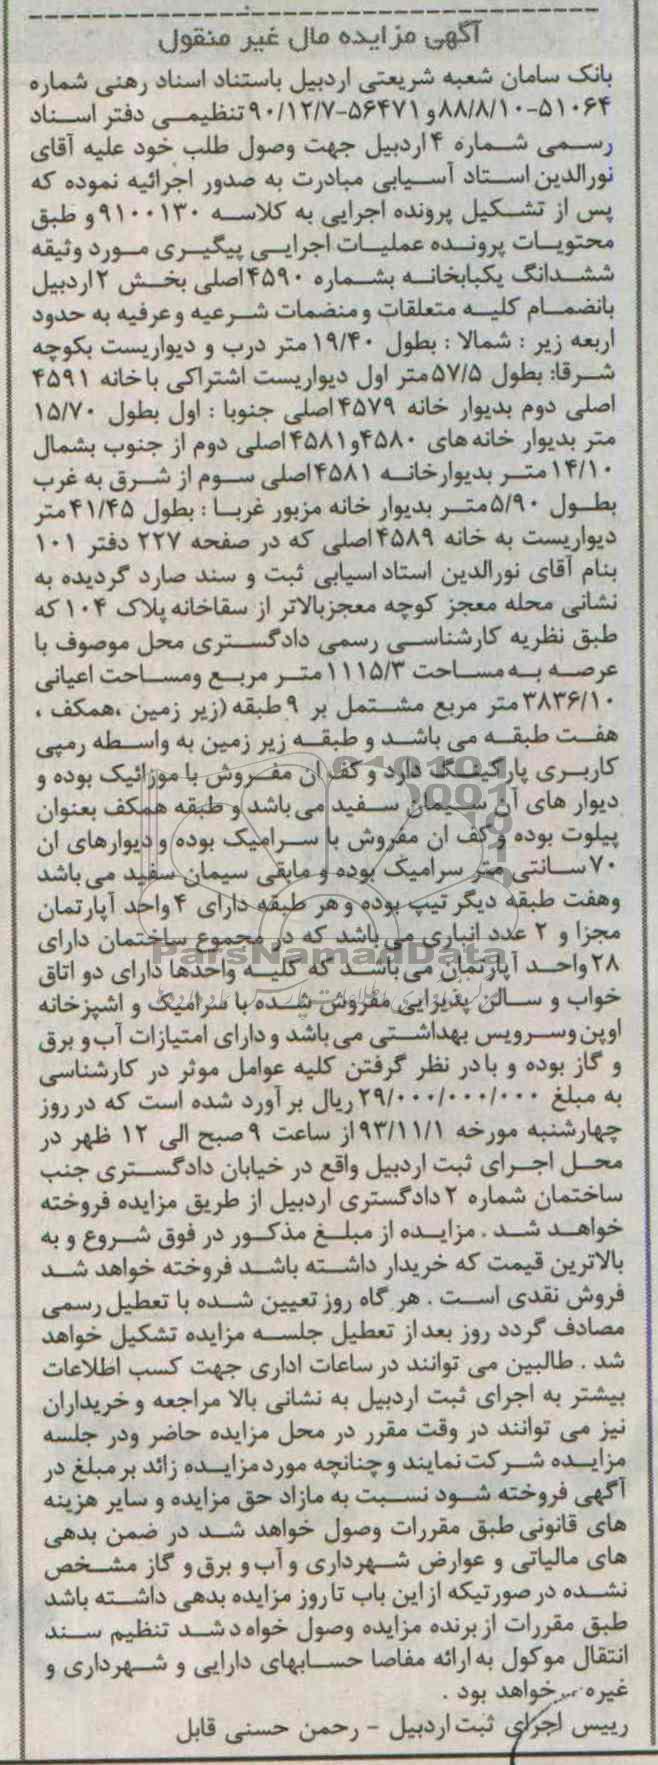 آگهی مزایده مال غیر منقول
بانک سامان شعبه شریعتی اردبیل باستناد اسناد رهنی شماره
۵۱۰۶۴-۸۸/۸/۱۰ و ۵۶۴۷۱-۹۰/۱۲/۷ تنظیمی دفتر اسناد
رسمی شماره ۴ اردبیل جهت وصول طلب خود علیه آقای
نورالدین استاد آسیابی مبادرت به صدور اجرائیه نموده که
پس از تشکیل پرونده اجرایی به کلاسه ۹۱۰۰۱۳۰ و طبق
محتویات پرونده عملیات اجرایی پیگیری مورد وثیقه
ششدانگ یکبابخانه بشماره ۴۵۹۰ اصلی بخش ۲ اردبیل
بانضمام کلیه متعلقات و منضمات شرعیه و عرفیه به حدود
اربعه زیر : شمالا : بطول ۱۹/۴۰ متر درب و دیواریست بکوچه
شرقا: بطول ۵۷/۵ متر اول دیواریست اشتراکی با خانه ۴۵۹۱
اصلی دوم بدیوار خانه ۴۵۷۹ اصلی جنوبا : اول بطول ۱۵/۷۰
متر بدیوار خانه های ۴۵۸۰ و ۴۵۸۱ اصلی دوم از جنوب بشمال
۱۴/۱۰ متر بدیوارخانه ۴۵۸۱ اصلی سوم از شرق به غرب
بطول ۵/۹۰ متر بدیوار خانه مزبور غربا : بطول ۴۱/۴۵ متر
دیواریست به خانه ۴۵۸۹ اصلی که در صفحه ۲۲۷ دفتر ۱۰۱
بنام آقای نورالدین استاد اسیابی ثبت و سند صارد گردیده به
نشانی محله معجز کوچه معجزبالاتر از سقاخانه پلاک ۱۰۴ که
طبق نظریه کارشناسی رسمی دادگستری محل موصوف با
عرصه به مساحت ۱۱۱۵/۳ متر مربع ومساحت اعیانی
۳۸۳۶/۱۰ متر مربع مشتمل بر ۹ طبقه (زیر زمین ،همکف ،
هفت طبقه می باشد و طبقه زیر زمین به واسطه رمپی
کاربری پارکینگ دارد و کف ان مفروش با موزائیک بوده و
دیوار های آن سیمان سفید می باشد و طبقه همکف بعنوان
پیلوت بوده و کف ان مفروش با سرامیک بوده و دیوارهای ان
۷۰ سانتی متر سرامیک بوده و مابقی سیمان سفید می باشد
وهفت طبقه دیگر تیپ بوده و هر طبقه دارای ۴ واحد آپارتمان
مجزا و ۲ عدد انباری می باشد که در مجموع ساختمان دارای
۲۸ واحد آپارتمان می باشد که کلیه واحدها دارای دو اتاق
خواب و سالن پذیرایی مفروش شده با سرامیک و اشپزخانه
اوپن وسرویس بهداشتی می باشد و دارای امتیازات آب و برق
و گاز بوده و با در نظر گرفتن کلیه عوامل موثر در کارشناسی
به مبلغ ۲۹/۰۰۰/۰۰۰/۰۰۰ ریال بر آورد شده است که در روز
چهارشنبه مورخه ۹۳/۱۱/۱ از ساعت ۹ صبح الی ۱۲ ظهر در
محل اجرای ثبت اردبیل واقع در خیابان دادگستری جنب
ساختمان شماره ۲ دادگستری اردبیل از طریق مزایده فروخته
خواهد شد . مزایده از مبلغ مذکور در فوق شروع و به
بالاترین قیمت که خریدار داشته باشد فروخته خواهد شد
فروش نقدی است . هر گاه روز تعیین شده با تعطیل رسمی
مصادف گردد روز بعد از تعطیل جلسه مزایده تشکیل خواهد
شد . طالبین می توانند در ساعات اداری جهت کسب اطلاعات
بیشتر به اجرای ثبت اردبیل به نشانی بالا مراجعه و خریداران
نیز می توانند در وقت مقرر در محل مزایده حاضر ودر جلسه
مزایده شرکت نمایند و چنانچه مورد مزایده زائد بر مبلغ در
آگهی فروخته شود نسبت به مازاد حق مزایده و سایر هزینه
های قانونی طبق مقررات وصول خواهد شد در ضمن بدهی
های مالیاتی و عوارض شهرداری و آب و برق و گاز مشخص
نشده در صورتیکه از این باب تا روز مزایده بدهی داشته باشد
طبق مقررات از برنده مزایده وصول خواه د شد تنظیم سند
انتقال موکول به ارائه مفاصا حسابهای دارایی و شهرداری و
غیره ... خواهد بود .
رییس اجرای ثبت اردبیل - رحمن حسنی قابل
ParsNamadData